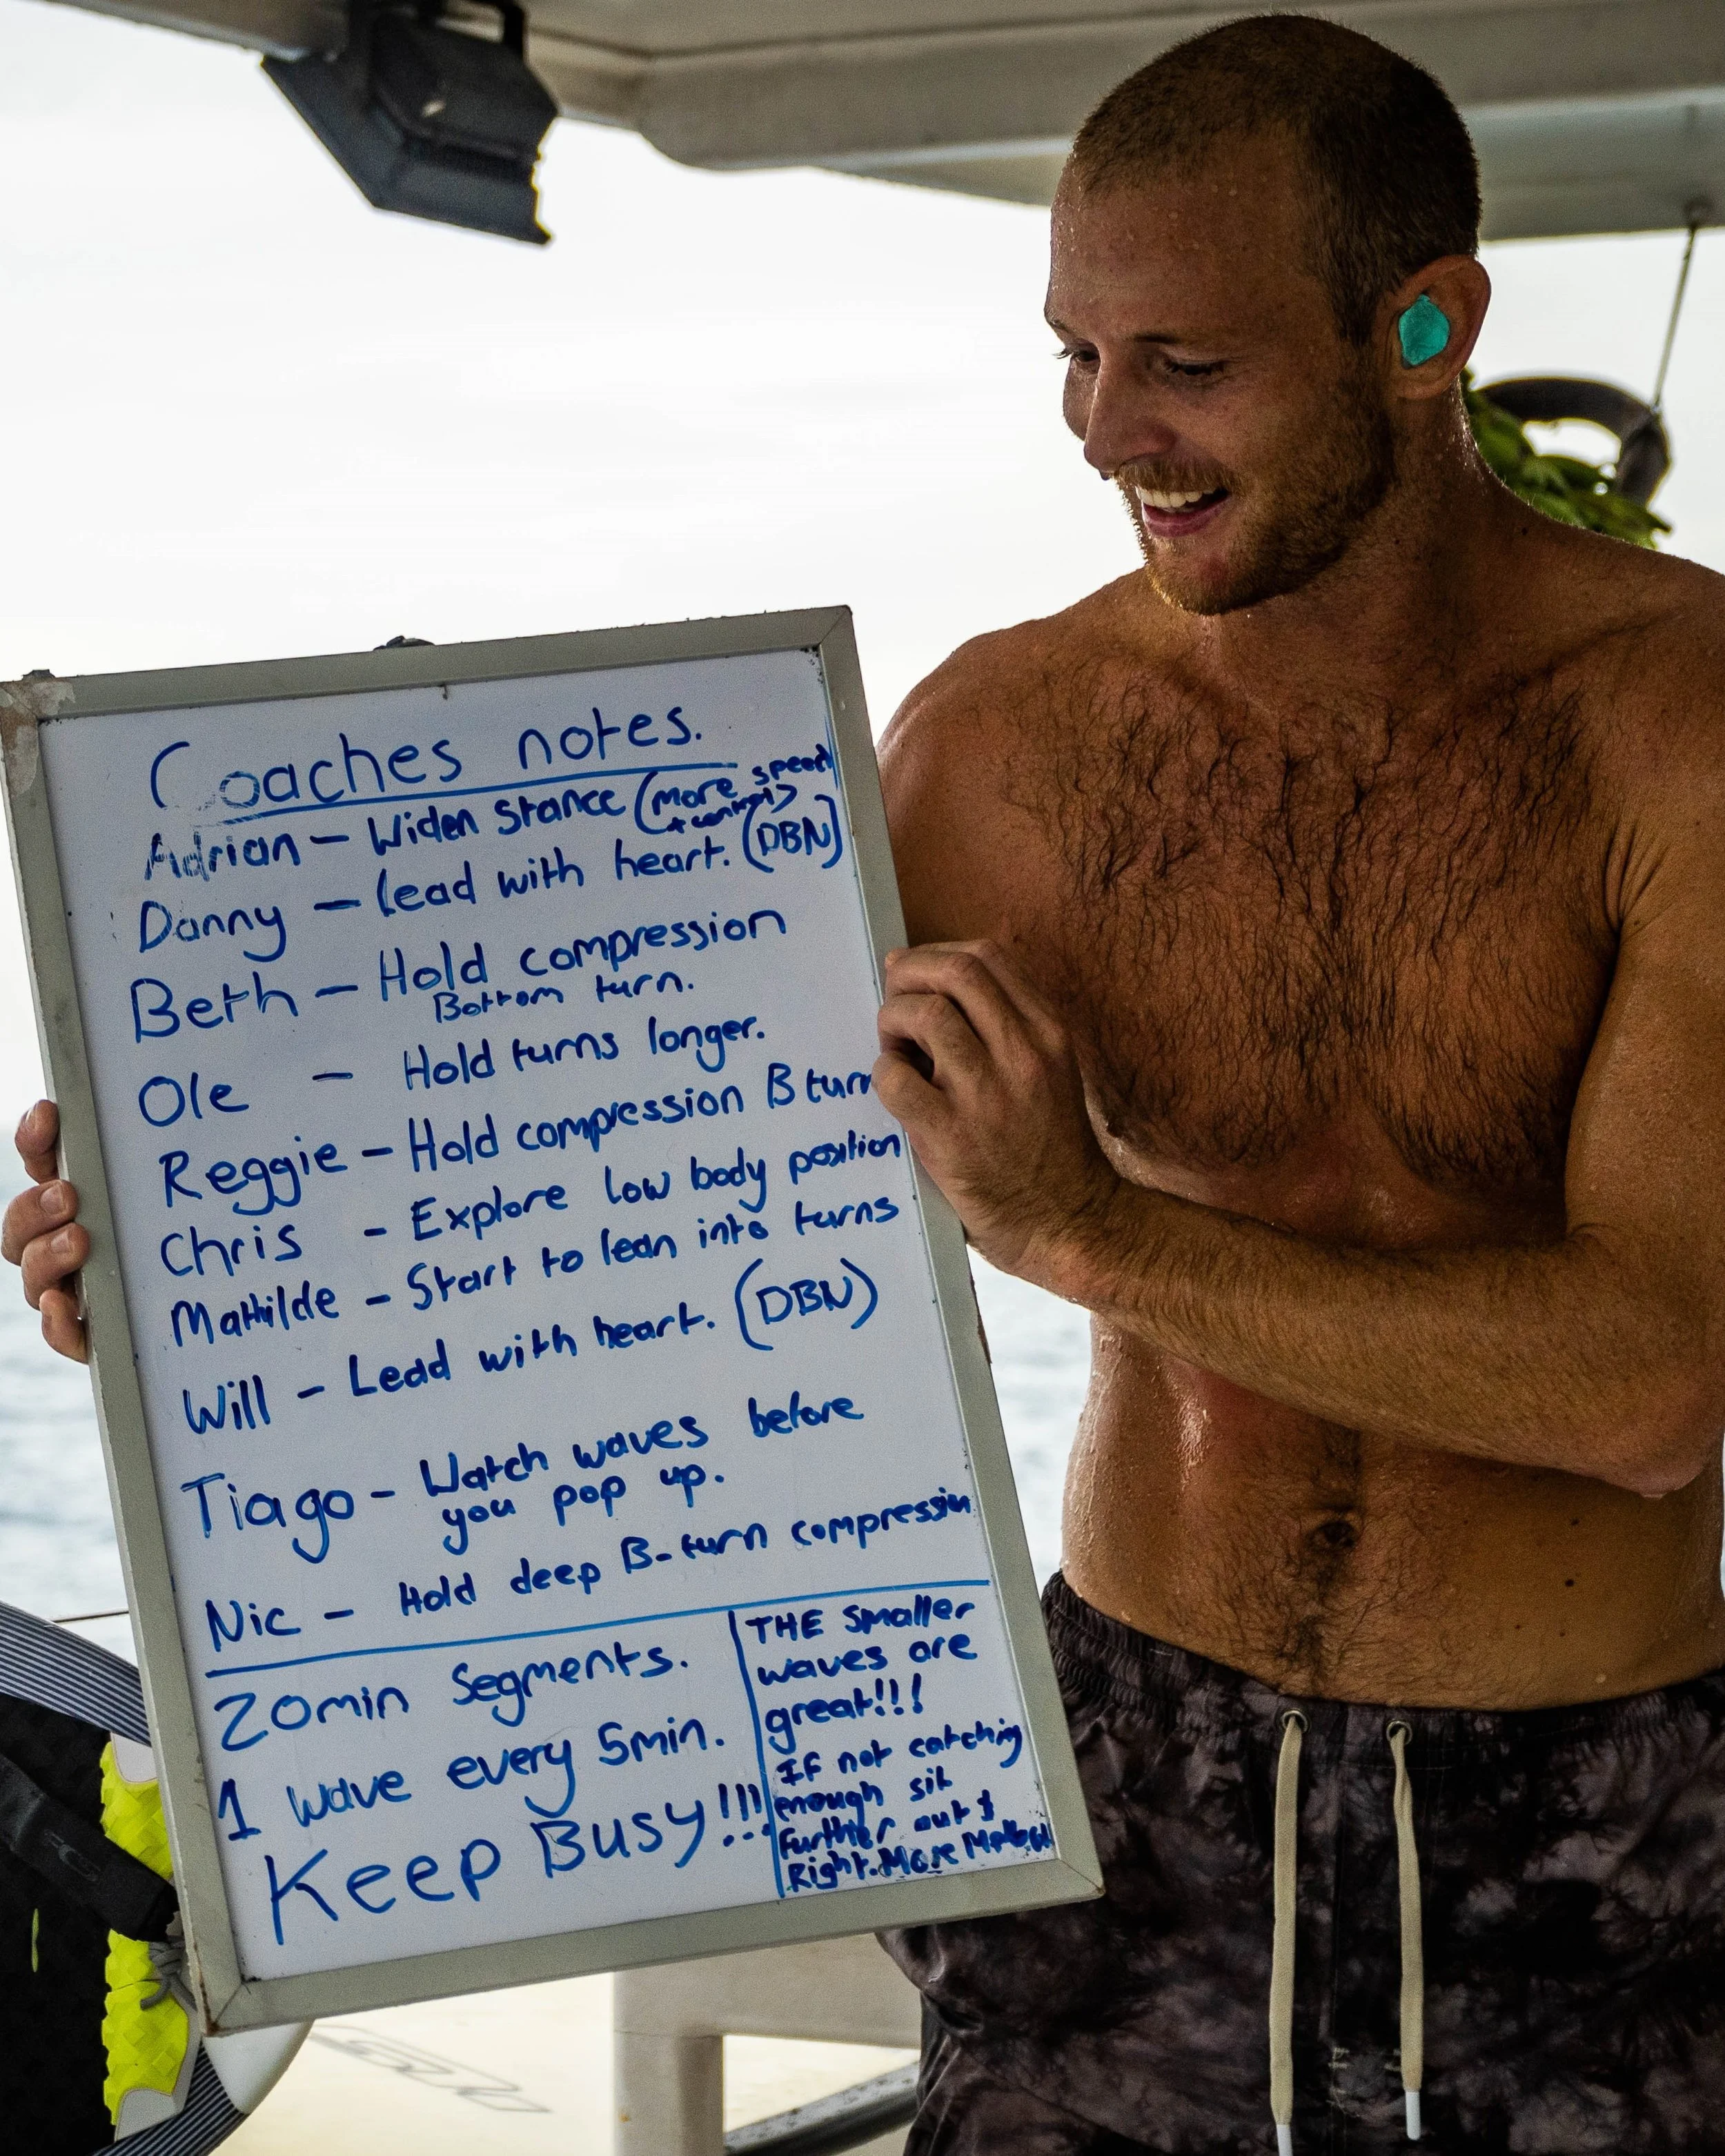 Coaches notes.
Adrian - Widen stance (more speed
+ control)
Danny - lead with heart. (DBN)
Beth - Hold compression
Bottom turn.
Ole - Hold turns longer.
Reggie - Hold compression B turn
Chris - Explore low body position
Mathilde - Start to lean into turns
Will - Lead with heart. (DBN)
Tiago - Watch waves before
you pop up.
Nic - Hold deep B-turn compression
20min Segments.
1 wave every 5min.
Keep Busy!!!
THE smaller
waves are
great!!!
IF not catching
enough sit
Further out &
Right. More